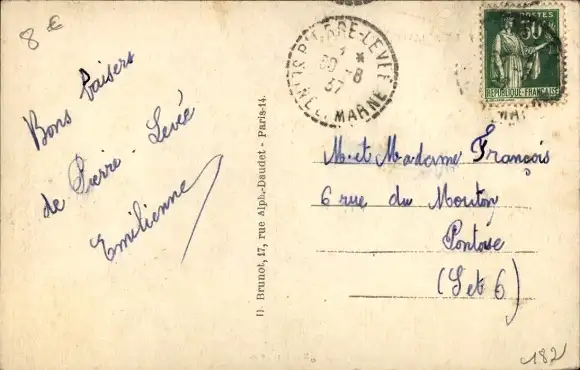 8 €
Bons baisers
de Pierre-Levée
Emilienne
D. Brunot, 17, rue Alph.-Daudet - Paris-14.
PIERRE-LEVÉE
30 -8
37
MARNE
POSTES
50
REPUBLIQUE-FRANÇAISE
M. et Madame François
6 rue du Mouton
Pontoise
(S et O)
182